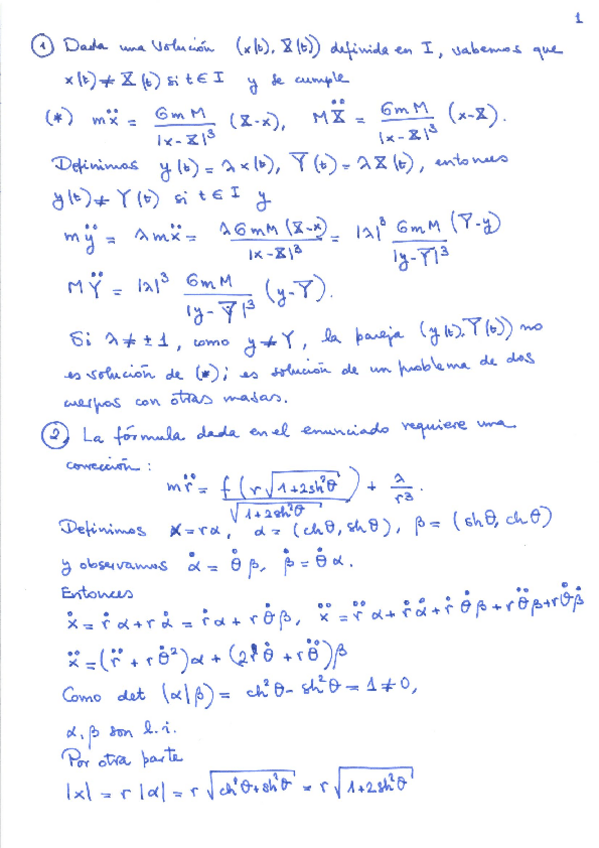 1
① Dada una solución (x(t), X(t)) definida en I, sabemos que
x(t) ≠ X(t) si t ∈ I y se cumple
(*) mẍ = GmM/|x-X|³ (X-x), MẌ = GmM/|x-X|³ (x-X).
Definimos y(t) = λx(t), Y(t) = λX(t), entonces
y(t) ≠ Y(t) si t ∈ I y
mÿ = λmẍ = λGmM(X-x)/|x-X|³ = |λ|³ GmM/|y-Y|³ (Y-y)
MŸ = |λ|³ GmM/|y-Y|³ (y-Y).
Si λ ≠ ±1, como y ≠ Y, la pareja (y(t), Y(t)) no
es solución de (*); es solución de un problema de dos
cuerpos con otras masas.
② La fórmula dada en el enunciado requiere una
corrección:
mr̈ = f(r√(1+2sh²θ))/√(1+2sh²θ) + λ/r³.
Definimos x = rα, α = (chθ, shθ), β = (shθ, chθ)
y observamos α̇ = θ̇β, β̇ = θ̇α.
Entonces
ẋ = ṙα + rα̇ = ṙα + rθ̇β, ẍ = r̈α + ṙα̇ + ṙθ̇β + rθ̈β + rθ̇β̇
ẍ = (r̈ + rθ̇²)α + (2ṙθ̇ + rθ̈)β
Como det (α|β) = ch²θ - sh²θ = 1 ≠ 0,
α, β son l.i.
Por otra parte
|x| = r|α| = r√(ch²θ+sh²θ) = r√(1+2sh²θ)